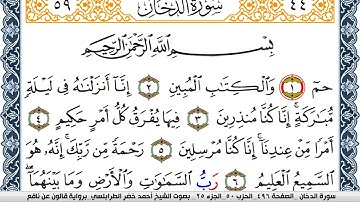 ٤٤ سُورَةُ الدُّخَانِ ٥٩
بِسْمِ اللَّهِ الرَّحْمَٰنِ الرَّحِيمِ
حمٓ ١ وَالْكِتَٰبِ الْمُبِينِ ٢ إِنَّا أَنزَلْنَٰهُ فِي لَيْلَةٍ
مُّبَٰرَكَةٍ إِنَّا كُنَّا مُنذِرِينَ ٣ فِيهَا يُفْرَقُ كُلُّ أَمْرٍ حَكِيمٍ ٤
أَمْرًا مِّنْ عِندِنَا إِنَّا كُنَّا مُرْسِلِينَ ٥ رَحْمَةً مِّن رَّبِّكَ إِنَّهُ هُوَ
السَّمِيعُ الْعَلِيمُ ٦ رَبُّ السَّمَٰوَٰتِ وَالْأَرْضِ وَمَا بَيْنَهُمَا
سورة الدخان - الصفحة ٤٩٦ - الحزب ٥٠ - الجزء ٢٥ - بصوت الشيخ أحمد خضر الطرابلسي - برواية قالون عن نافع